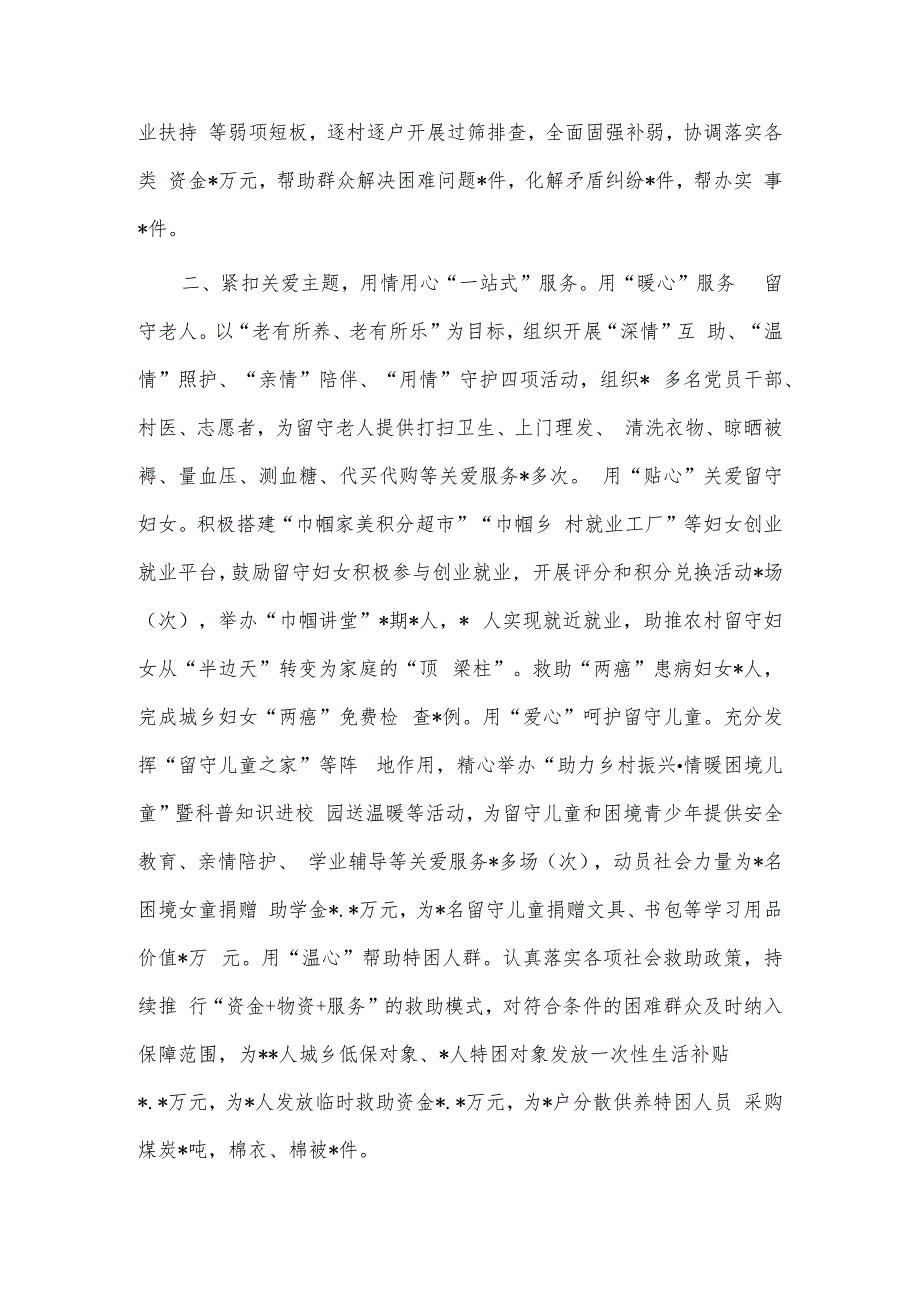 业扶持 等弱项短板，逐村逐户开展过筛排查，全面固强补弱，协调落实各
类 资金*万元，帮助群众解决困难问题*件，化解矛盾纠纷*件，帮办实 事
*件。
二、紧扣关爱主题，用情用心“一站式”服务。用“暖心”服务 留
守老人。以“老有所养、老有所乐”为目标，组织开展“深情”互 助、“温
情”照护、“亲情”陪伴、“用情”守护四项活动，组织* 多名党员干部、
村医、志愿者，为留守老人提供打扫卫生、上门理发、 清洗衣物、晾晒被
褥、量血压、测血糖、代买代购等关爱服务*多次。 用“贴心”关爱留守
妇女。积极搭建“巾帼家美积分超市”“巾帼乡 村就业工厂”等妇女创业
就业平台，鼓励留守妇女积极参与创业就业，开展评分和积分兑换活动*场
（次），举办“巾帼讲堂”*期*人，* 人实现就近就业，助推农村留守妇
女从“半边天”转变为家庭的“顶 梁柱”。救助“两癌”患病妇女*人，
完成城乡妇女“两癌”免费检 查*例。用“爱心”呵护留守儿童。充分发
挥“留守儿童之家”等阵 地作用，精心举办“助力乡村振兴•情暖困境儿
童”暨科普知识进校 园送温暖等活动，为留守儿童和困境青少年提供安全
教育、亲情陪护、 学业辅导等关爱服务*多场（次），动员社会力量为*名
困境女童捐赠 助学金*.*万元，为*名留守儿童捐赠文具、书包等学习用品
价值*万 元。用“温心”帮助特困人群。认真落实各项社会救助政策，持
续推 行“资金+物资+服务”的救助模式，对符合条件的困难群众及时纳入
保障范围，为**人城乡低保对象、*人特困对象发放一次性生活补贴
*.*万元，为*人发放临时救助资金*.*万元，为*户分散供养特困人员 采购
煤炭*吨，棉衣、棉被*件。